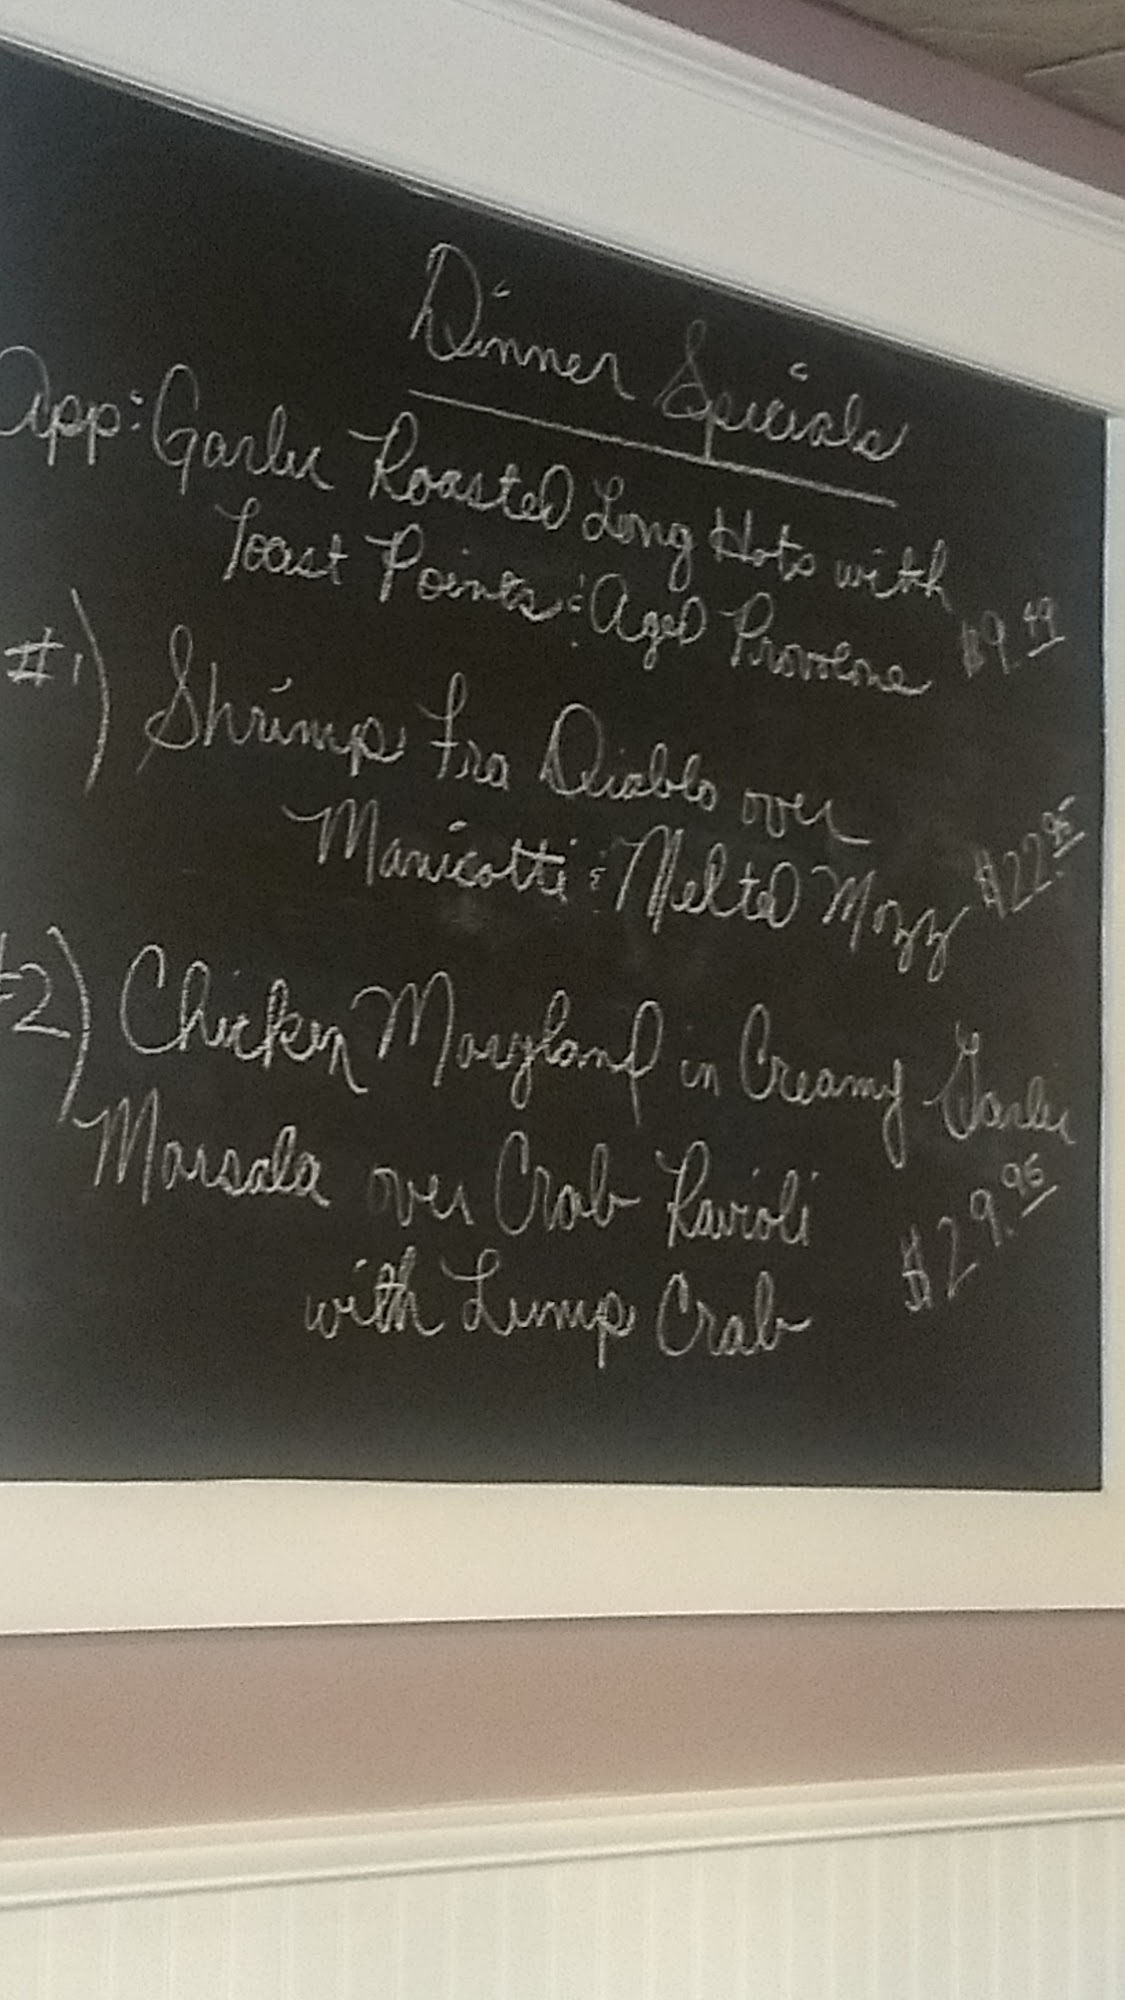 Dinner Specials
App: Garlic Roasted Long Hots with
Toast Points & Aged Provolone $9.49
#1) Shrimp Fra Diablo over
Manicotti & Melted Mozz $22.95
#2) Chicken Maryland in Creamy Garlic
Marsala over Crab Ravioli
with Lump Crab $29.95